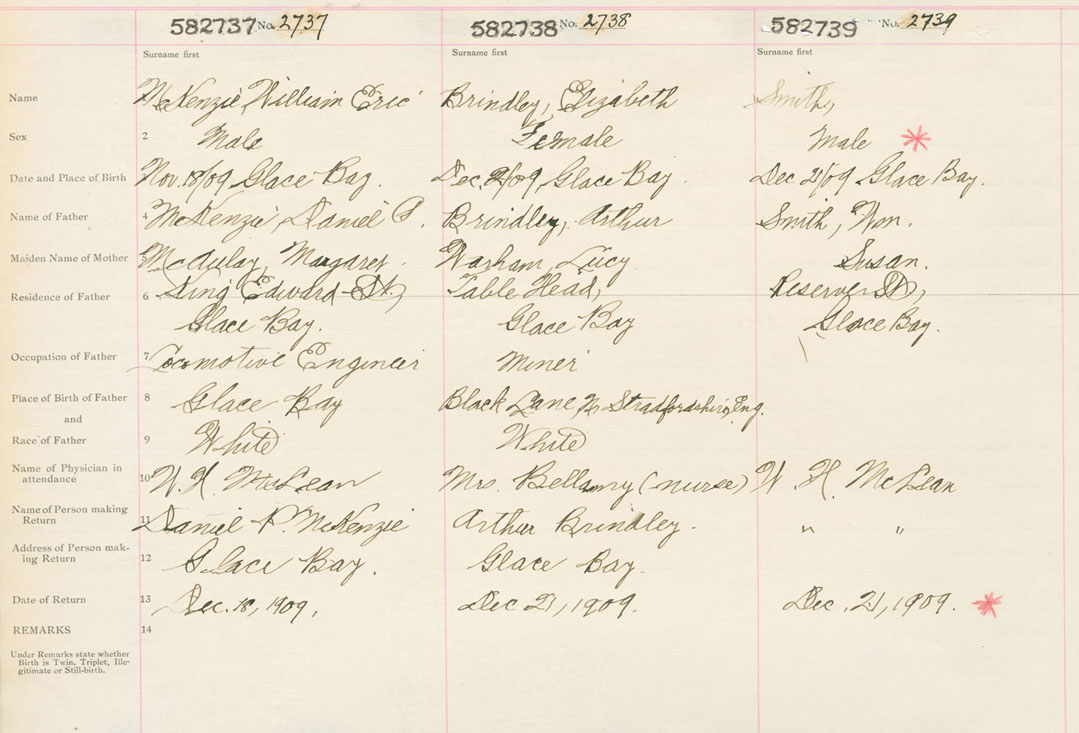 582737 No. 2737 582738 No. 2738 582739 No. 2739
Surname first Surname first Surname first
Name McKenzie, William Eric Brindley, Elizabeth Smith,
Sex 2 Male Female Male *
Date and Place of Birth Nov. 18/09 Glace Bay. Dec. 2/09 Glace Bay. Dec 21/09 Glace Bay.
Name of Father 4 McKenzie, Daniel P. Brindley, Arthur Smith, Wm.
Maiden Name of Mother 5 McAulay, Margaret. Warham, Lucy Susan.
Residence of Father 6 King Edward St, Table Head, Reserve St,
Glace Bay. Glace Bay Glace Bay.
Occupation of Father 7 Locomotive Engineer Miner
Place of Birth of Father 8 Glace Bay Black Lane Nr Stradfordshire, Eng.
and
Race of Father 9 White White
Name of Physician in
attendance 10 W. H. McLean Mrs. Bellamy (nurse) W. H. McLean
Name of Person making
Return 11 Daniel P. McKenzie Arthur Brindley. " "
Address of Person mak-
ing Return 12 Glace Bay. Glace Bay.
Date of Return 13 Dec. 18, 1909. Dec 21, 1909. Dec. 21, 1909. *
REMARKS 14
Under Remarks state whether
Birth is Twin, Triplet, Ille-
gitimate or Still-birth.